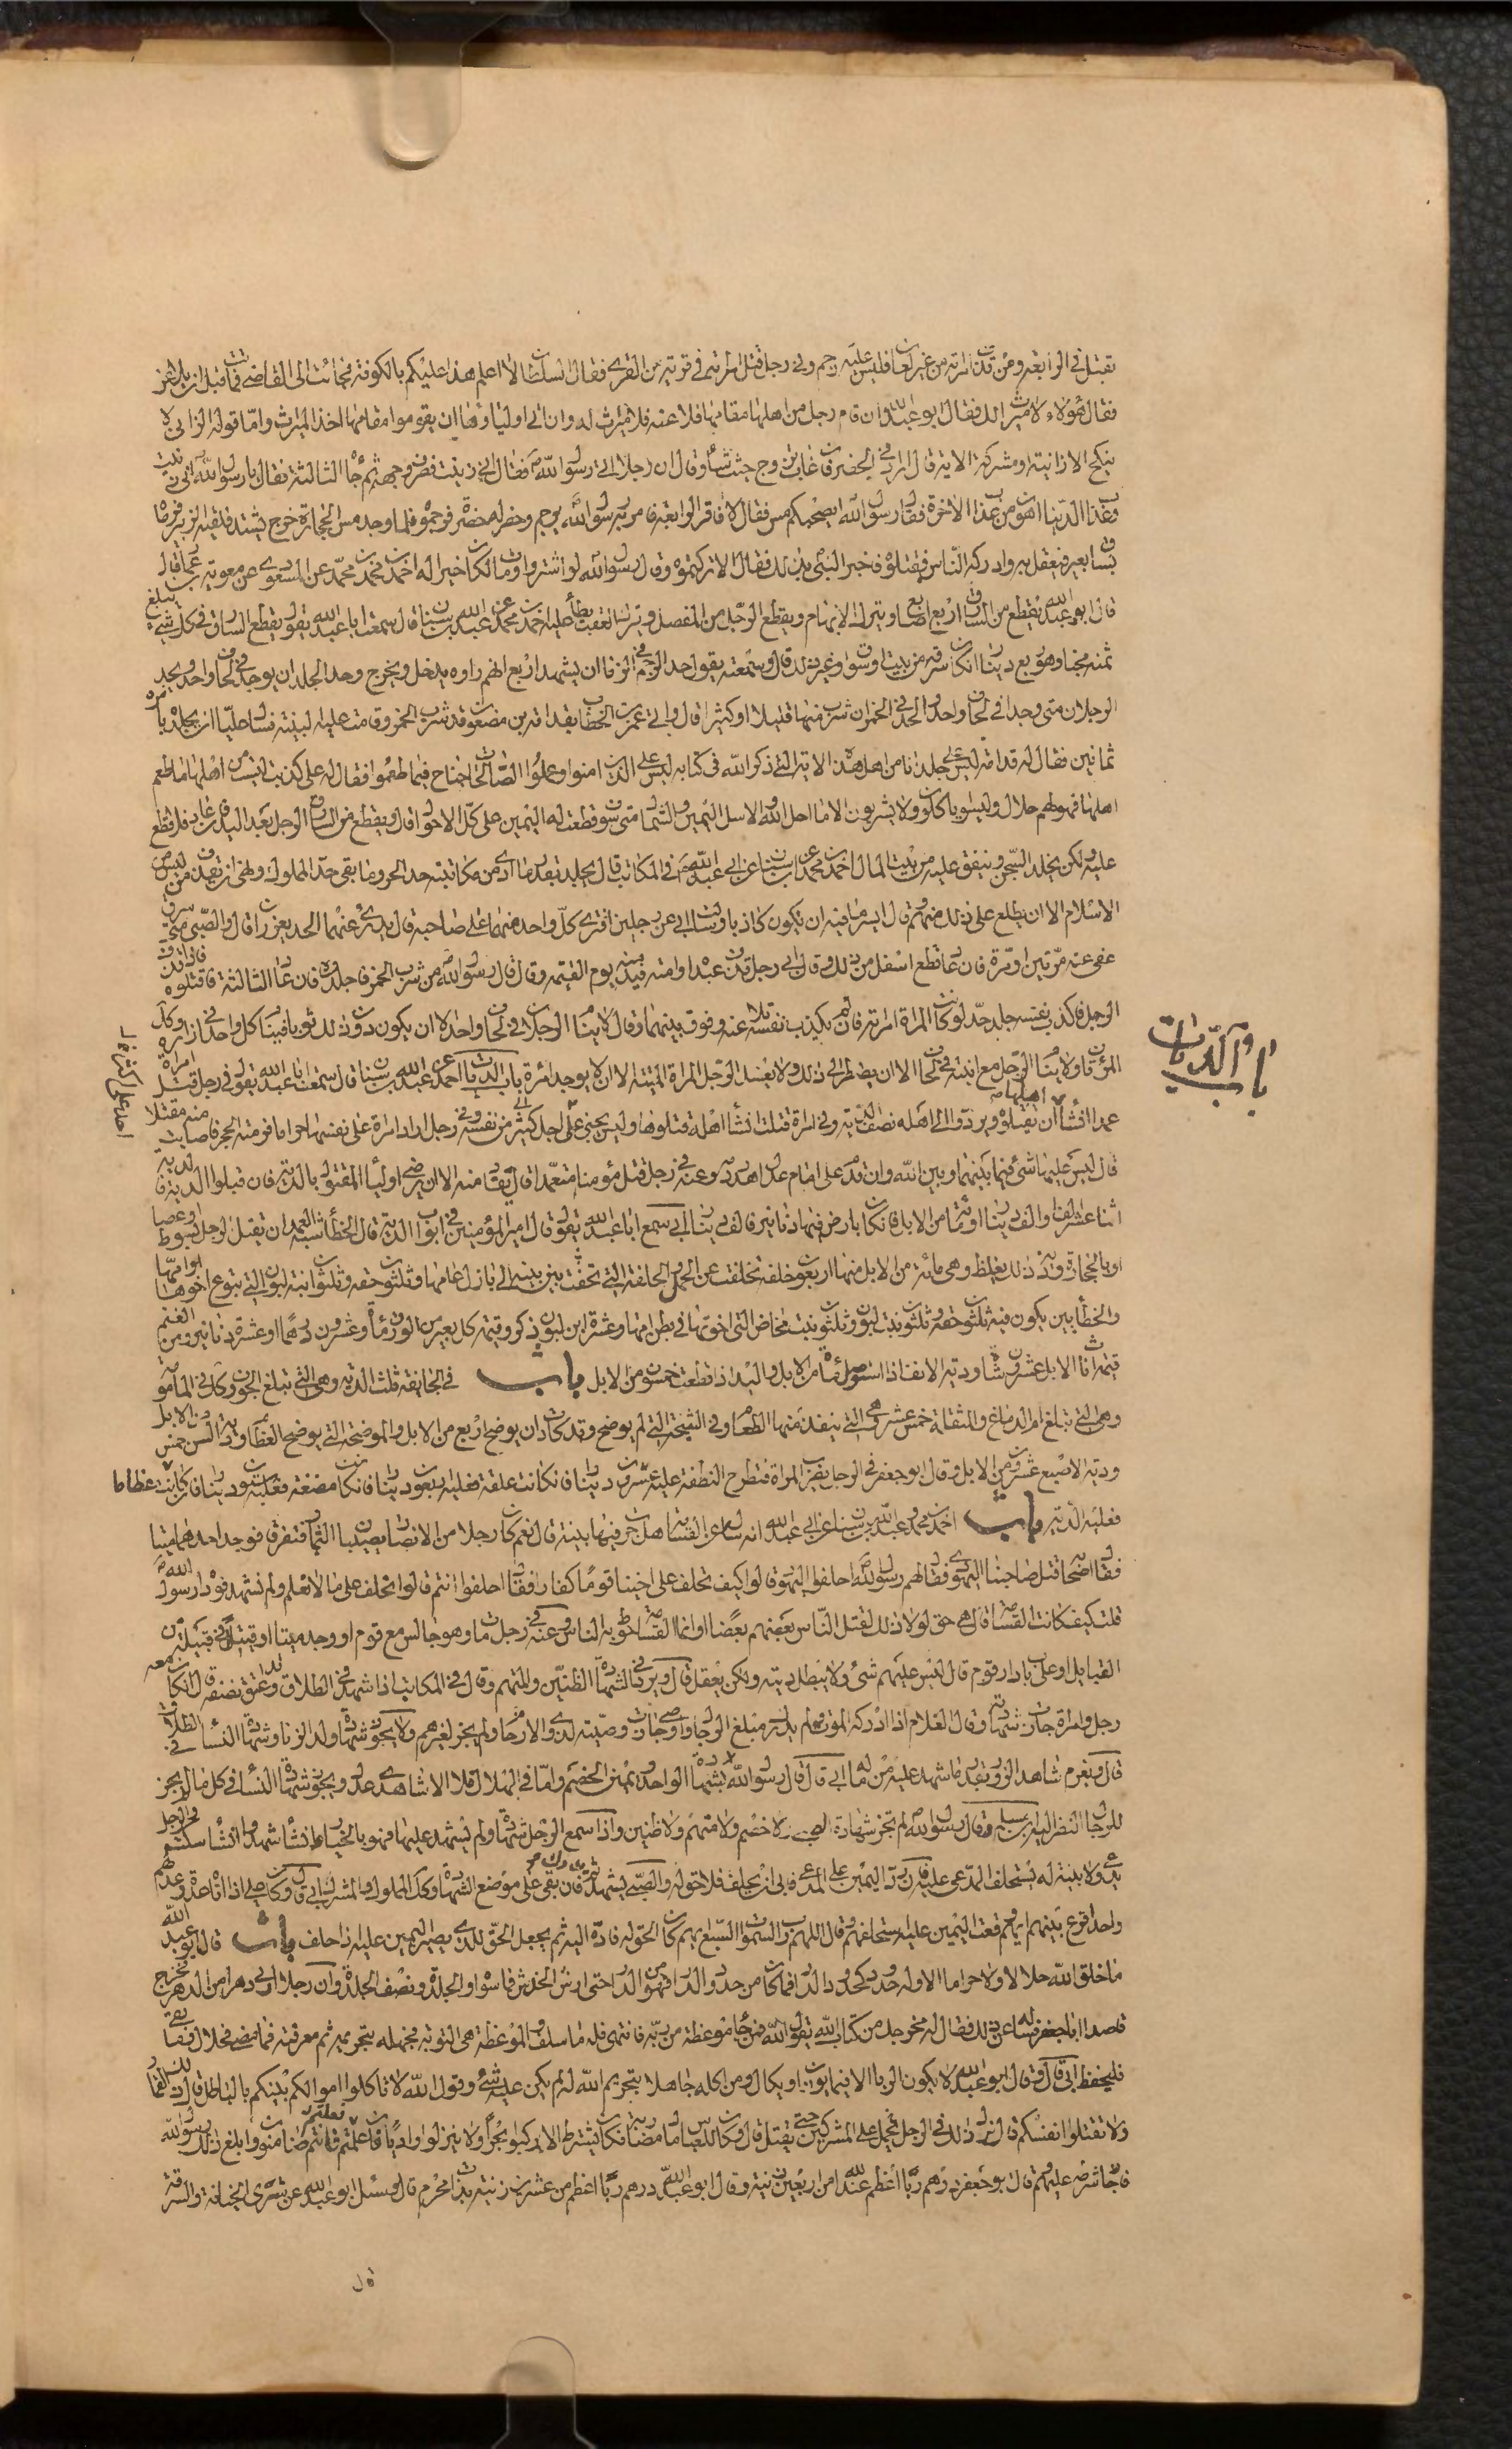 يقتل في الرابعة ومن قذف امراته من غير لعان فليس عليه رجم وفي رجل قتل امراته في قرية من القرى فقال السلطان لا اعلم هذا عليكم بالكوفة فجاءت الى القاضي
فقال هؤلاء لا ميراث لك فقال ابو عبدالله ان قام رجل من اهلها مقامها فلاعنه فلا ميراث له وان ابي اولياؤها ان يقوموا مقامها اخذ الميراث واما قوله الزاني لا
ينكح الا زانية او مشركة الاية قال وقال ان رجلا اتى رسول الله فقال اني زنيت فصرف وجهه ثم جاء الثالثة فقال يا رسول الله اني زنيت
وعذاب الدنيا اهون من عذاب الاخرة فقال رسول الله ابصاحبكم مس فقال لا فاقر الرابعة فامر به رسول الله يرجم وحفر له حفرة فرجموه فلما وجد مس الحجارة خرج يشتد فلقيه الزبير فرماه
بساق بعير فعقل به وادركه الناس فقتلوه فاخبر النبي بذلك فقال الا تركتموه وقال رسول الله لو استتر وتاب كان خيرا له احمد بن محمد عن المسعودي عن معوية بن عمار قال
قال ابو عبدالله يقطع من السارق اربع اصابع ويترك الابهام ويقطع الرجل من المفصل ويترك العقب يطأ عليه احمد بن محمد عن عبدالله بن سنان قال سمعت ابا عبدالله يقول يقطع السارق في كل شيء بلغ
ثمنه مجنا وهو ربع دينار ان كان سرقه من بيت او سوق او غير ذلك قال وسمعته يقول حد الرجم في الزنا ان يشهد اربع انهم راوه يدخل ويخرج وحد الجلد ان يوجدا في لحاف واحد ويجلد
الرجلان متى وجدا في لحاف واحد والحد في الخمر ان شرب منها قليلا او كثيرا قال واتي عمر بن الخطاب بقدامة بن مضعون قد شرب الخمر وقامت عليه البينة فسال عليا ان يجلده بامره
ثمانين فقال له قدامة ليس علي جلد انا من اهل هذه الاية التي ذكر الله في كتابه ليس على الذين امنوا وعملوا الصالحات جناح فيما طعموا فقال له علي كذبت لست من اهلها ما طعم
اهلها فهو لهم حلال وليسوا ياكلون ولا يشربون الا ما احل الله والاشل اليمين والشمال متى سرق قطعت له اليمين على كل الاحوال قال ويقطع من السارق الرجل بعد اليد فان عاد فلا قطع
عليه ولكن يخلد السجن وينفق عليه من بيت المال احمد بن محمد عن ابن سنان عن ابي عبدالله في المكاتب قال يجلد بقدر ما ادى من مكاتبته حد الحر وما بقي حد المملوك ونهى ان يقذف من ليس من
الاسلام الا ان يطلع على ذلك منهم وقال ايسر ما فيه ان يكون كاذبا وسالت ابي عن رجلين افترى كل واحد منهما على صاحبه قال يدرء عنهما الحد ويعزران قال والصبي متى سرق
عفى عنه مرتين او مرة فان عاد قطع اسفل من ذلك وقال ابي رجل قذف عبده او امته قيد منه يوم القيمة وقال قال رسول الله من شرب الخمر فاجلدوه فان عاد الثالثة فاقتلوه فان قذف
الرجل فاكذب نفسه جلد حد لو كانت المراة امراته فان لم يكذب نفسه تلاعنه وفرق بينهما وقال لا ينام الرجلان في لحاف واحد الا ان يكون دون ذلك ثوبا فينام كل واحد في ازاره وكل
المراتان ولا ينام الرجل مع ابنته في لحاف الا ان يضطر الى ذلك ولا يغسل الرجل المراة الميتة الا ان لا يوجد امرة باب الديات احمد عن عبدالله بن سنان قال سمعت ابا عبدالله يقول في رجل قتل امراة
عمدا ان شاء اهلها ان يقتلوه ويردوا الى اهله نصف الدية وفي امراة قتلت ان شاء اهله قتلوها وليس يجني على احد اكثر من نفسه وفي رجل اراد امراة على نفسها حراما فرمته بحجر فاصابت منه مقتلا
قال ليس عليها شيء فيما بينها وبين الله وان قدم على امام عدل اهدر دمه وعنه في رجل قتل مؤمنا متعمدا قال يقاد منه الا ان يرضى اولياء المقتول بالدية فان قبلوا الدية فالدية
اثنا عشر الفا او الف دينار او مائة من الابل فان كان بارض فيها دنانير فالف دينار ابي سمع ابا عبدالله يقول قال امير المؤمنين في ابواب الدية قال الخطأ شبه العمد ان يقتل الرجل بسوط او عصا
او بالحجارة ودية ذلك يغلظ وهي مائة من الابل منها اربعون خلفة تخلفت عن الحمل والخلفة التي لقحت بين ثنية الى بازل عامها وثلثون حقة وثلثون ابنة لبون التي تتبع اخوها او امها
والخطأ بين يكون فيه ثلثون حقة وثلثون بنت لبون وثلثون بنت مخاض التي اخوتها في بطن امها وعشرة ابن لبون ذكر وقيمة كل بعير من الورق مائة وعشرون درهما او عشرة دنانير ومن الغنم
قيمة اناث الابل عشرون شاة ودية الانف اذا استوصل مائة من الابل واليد اذا قطعت خمسون من الابل باب في الجائفة ثلث الدية وهي التي تبلغ الجوف وكذلك في المامومة
وهي التي تبلغ ام الدماغ والمنقلة خمس عشر وهي التي ينفذ منها الطعام وفي الشجة التي لم يوضح وقد كادت ان يوضح اربع من الابل والموضحة التي يوضح العظام ودية السن خمس من الابل
ودية الاصبع عشرون من الابل وقال ابو جعفر في الرجل يضرب المراة فتطرح النطفة عليه عشرون دينارا فان كانت علقة فعليه اربعون دينارا فان كانت مضغة فعليه ستون دينارا فان كانت عظاما
فعليه الدية باب احمد بن محمد عن عبدالله بن سنان عن ابي عبدالله انه ساله عن القسامة هل جرت فيها بينة قال نعم كان رجلا من الانصار يصيبان الثمار فتفرقا فوجد احدهما ميتا
فقال اصحابه قتل صاحبنا اليهود فقال لهم رسول الله احلفوا اليهود قالوا كيف نحلف على اخينا قوما كفارا فقال احلفوا انتم قالوا نحلف على ما لا نعلم ولم نشهد فوداه رسول الله
قلت كيف كانت القسامة قال هي حق لولا ذلك لقتل الناس بعضهم بعضا وانما القسامة حوط به الناس وعنه في رجل مات وهو جالس مع قوم او وجد ميتا او قتيل في قبيلة من
القبايل او على باب دار قوم قال ليس عليهم شيء ولا يبطل ديته ولكن يعقل قال ويرد في الشهادة الظنين والمتهم وقال في المكاتب اذا شهد في الطلاق وقد اعتق نصفه قال ان كان معه
رجل وامراة جازت شهادته وقال الغلام اذا ادركه الموت ولم يدرك مبلغ الرجال واوصى جازت وصيته لذوي الارحام ولم يجز لغيرهم ولا يجوز شهادة ولد الزنا وشهادة النساء في الطلاق
قال ويغرم شاهد الزور بقدر ما شهد عليه من ماله ابي قال قال رسول الله بشهادة الواحد ويمين الخصم واما في الهلال فلا الا شاهدي عدل ويجوز شهادة النساء في كل ما لم يجز
للرجال النظر اليه وقال رسول الله لم تجز شهادة الصبي ولا خصم ولا متهم ولا ظنين واذا سمع الرجل شهادة ولم يشهد عليها فهو بالخيار ان شاء شهد وان شاء سكت في الرجل
يدعي ولا بينة له يستحلف المدعى عليه فان رد اليمين على المدعي فابى ان يحلف فلا حق له والصبي يشهد ثم فان بقي على موضع الشهادة وكذلك المملوك والمشرك ابي قال وكان علي اذا اتاه عدة وعدلهم
واحد اقرع بينهم ايهم وقعت اليمين عليه استحلفهم وقال اللهم رب السموات السبع ايهم كان الحق له فاده اليه ثم يجعل الحق للذي يصير اليمين عليه اذا حلف باب قال ابو عبد الله
ما خلق الله حلالا ولا حراما الا وله حدود كحدود الدار فما كان من حدود الدار فهو من الدار حتى ارش الخدش فما سواه والجلدة ونصف الجلدة وان رجلا اربى دهرا من الدهر فخرج
قاصدا ابا جعفر فساله عن ذلك فقال له مخرجك من كتاب الله يقول الله فمن جاءه موعظة من ربه فانتهى فله ما سلف والموعظة هي التوبة فجهله بتحريمه ثم معرفته فما مضى فحلال وما بقي
فليحفظ ابي قال قال ابو عبدالله لا يكون الربا الا فيما يوزن او يكال ومن اكله جاهلا بتحريم الله له لم يكن عليه شيء وقول الله لا تاكلوا اموالكم بينكم بالباطل
ولا تقتلوا انفسكم قال نزل ذلك في الرجل يحمل على المشركين حتى يقتل قال وكان للعباس مال مضاربة فكان يشترط الا يركبوا بحرا ولا ينزلوا واديا فان فعلتم فانتم ضامنون وابلغ ذلك رسول الله
فاجاز شرطه عليهم وقال ابو جعفر درهم ربا اعظم عند الله من اربعين زنية وقال ابو عبدالله درهم ربا اعظم من عشرين زنية بذات محرم قال وسئل ابو عبدالله عن شرى الخيانة والسرقة
باب الديات
قال